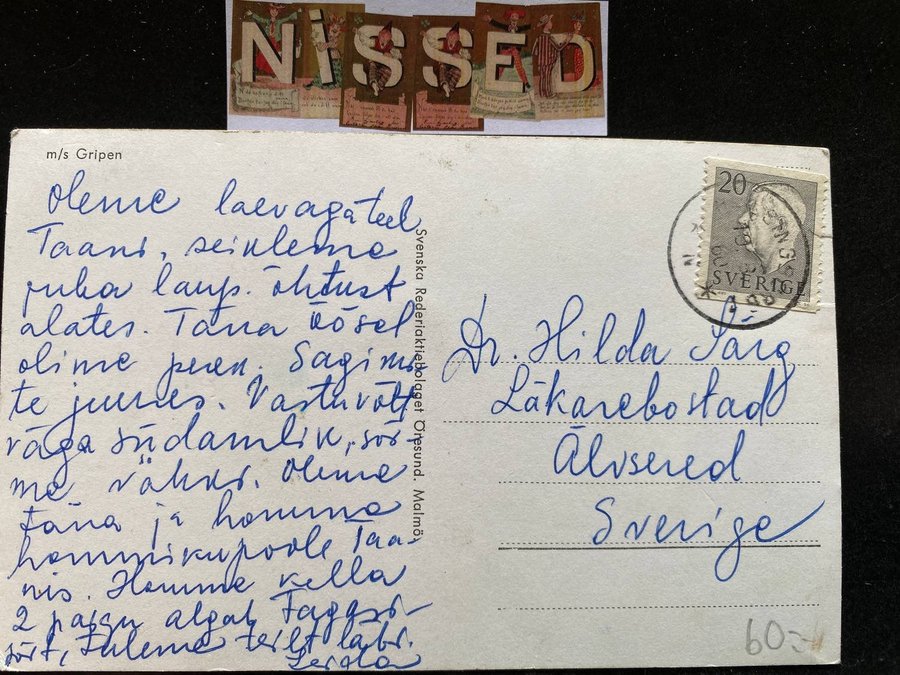 NiSSED
m/s Gripen
Oleme laevagateel
Taani, seikleme
juba laup. õhtust
alates. Täna öösel
olime peren. Sagim-
te juures. Vastuvõtt
väga südamlik, sõi-
me vähki. Oleme
täna ja homme
hommikupoole Taa-
nis. Homme kella
2 paigu algab Tagasi-
sõit, tuleme teilt läbi.
Svenska Rederiaktiebolaget Öresund. Malmö
20
SVERIGE
Dr. Hilda Sarg
Läkarebostad
Älvsered
Sverige
60:-